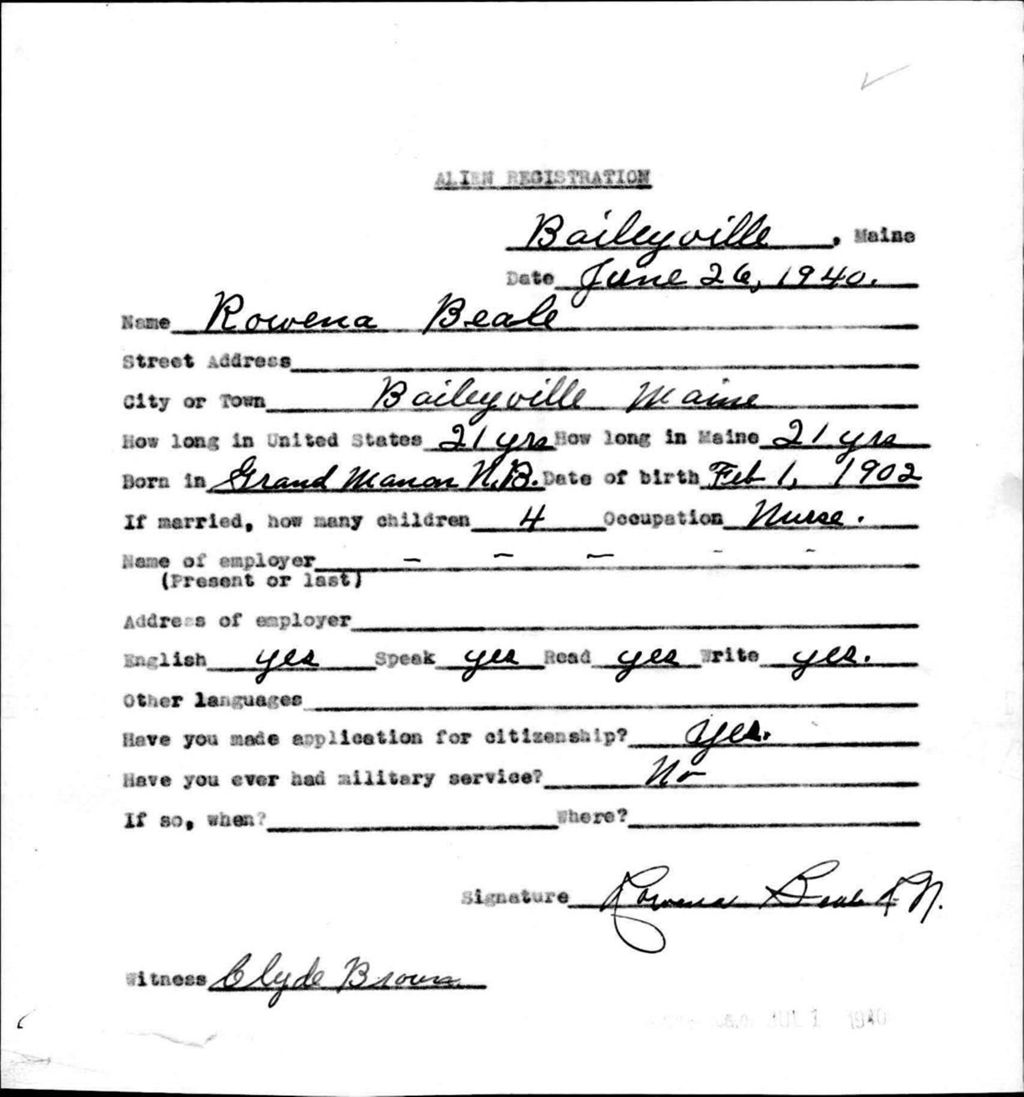 ALIEN REGISTRATION
Baileyville, Maine
Date June 26, 1940.
Name Rowena Beale
Street Address
City or Town Baileyville Maine
How long in United States 21 yrs How long in Maine 21 yrs
Born in Grand Manan N.B. Date of birth Feb 1, 1902
If married, how many children 4 Occupation Nurse.
Name of employer — — — - -
(Present or last)
Address of employer
English yes Speak yes Read yes Write yes.
Other languages
Have you made application for citizenship? Yes.
Have you ever had military service? No
If so, when? Where?
Signature Rowena Beale R.N.
Witness Clyde Brown
JUL 1 1940